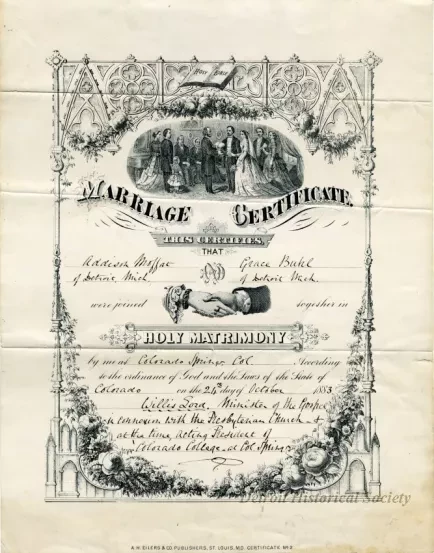 HOLY BIBLE
MARRIAGE CERTIFICATE.
THIS CERTIFIES,
THAT
Addison Moffat AND Grace Buhl
of Detroit Mich. of Detroit Mich.
were joined together in
HOLY MATRIMONY
by me at Colorado Springs Col According
to the ordinance of God and the Laws of the State of
Colorado on the 24th day of October 1883
Willis Lord, Minister of the Gospel
in connexion with the Presbyterian Church &
at the time, acting President of
Colorado College, at Col Springs
Detroit Historical Society
A.H. EILERS & CO. PUBLISHERS, ST. LOUIS, MO. CERTIFICATE Nº 2